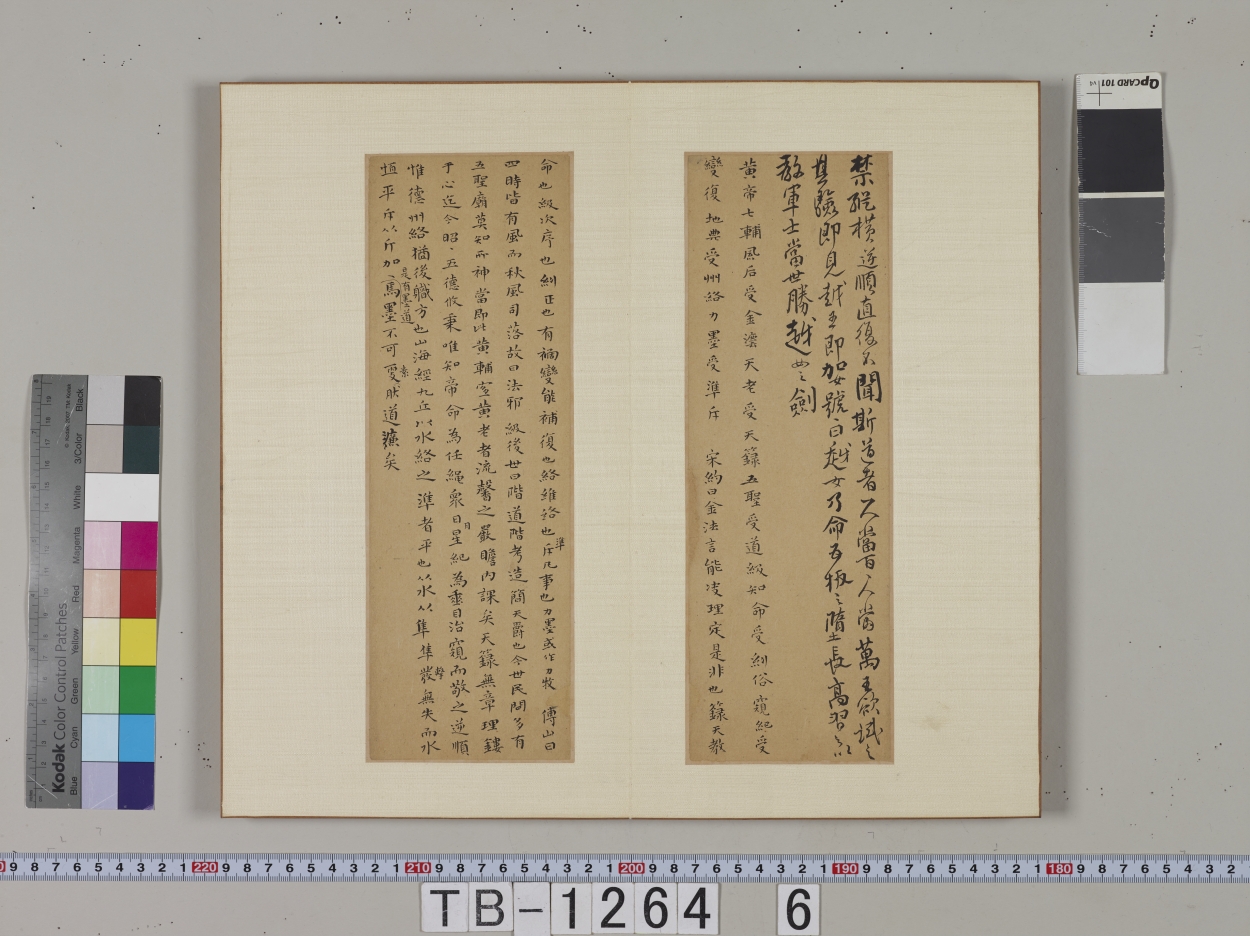 禁縱橫逆順直復不聞斯道者一人當百百人當萬王欲試之
其驗即見越王即加女號曰越女乃命五板之隊長高習之
教軍士當世勝越女之劍
黃帝七輔風后受金法天老受天籙五聖受道級知命受糾俗窺紀受
變復地典受州絡力墨受準斥 宋約曰金法言能凌理定是非也籙天教
命也級次序也糾正也有禍變能補復也絡維絡也準斥凡事也力墨或作力牧 傅山曰
四時皆有風而秋風司落故曰法邪級後世曰階道階考造簡天爵也今世民間多有
五聖廟莫知所神當即此黃輔
于心迄今昭〻五德攸秉唯知帝命為任繩衆日月星紀為垂目治窺而敬之逆順
惟德州絡猶後職方也山海經九丘以水絡之準者平也以水以隼隼擊發無失而水
恒平斥以斤加
是有墨道
墨不可
道
矣
QPCARD 101
Kodak Color Control Patches
Blue Cyan Green Yellow Red Magenta White 3/Color Black
TB-1264 6